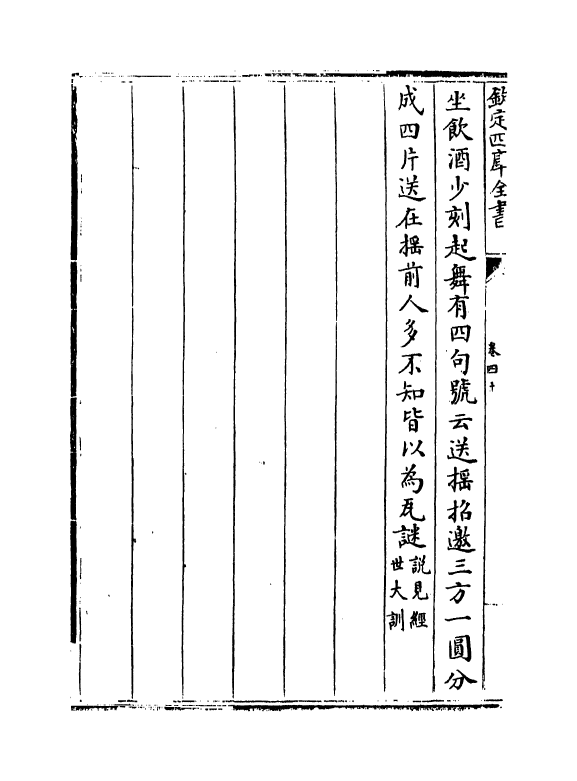 欽定四庫全書
卷四十
坐飲酒少刻起舞有四句號云送摇招邀三方一圓分
成四片送在摇前人多不知皆以為瓦謎說見經
世大訓